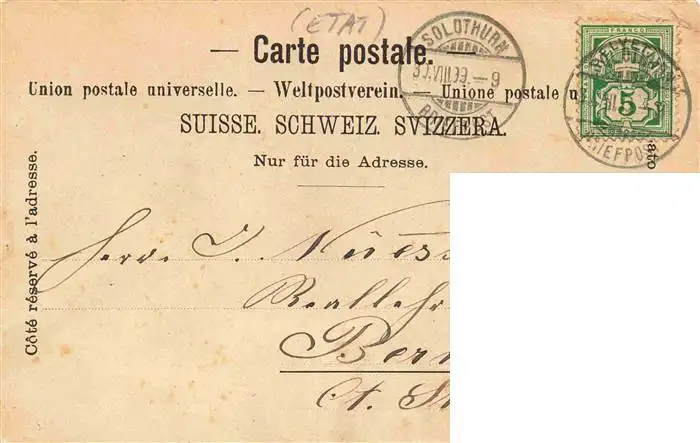 (ETAT)
— Carte postale. —
Union postale universelle. — Weltpostverein. — Unione postale u
SUISSE. SCHWEIZ. SVIZZERA.
Nur für die Adresse.
Côté réservé à l'adresse.
SOLOTHURN
VIII.99.–9
FRANCO
5
BRIEFPOST
Herr. J.
Reallehr
Bern
Ct. S